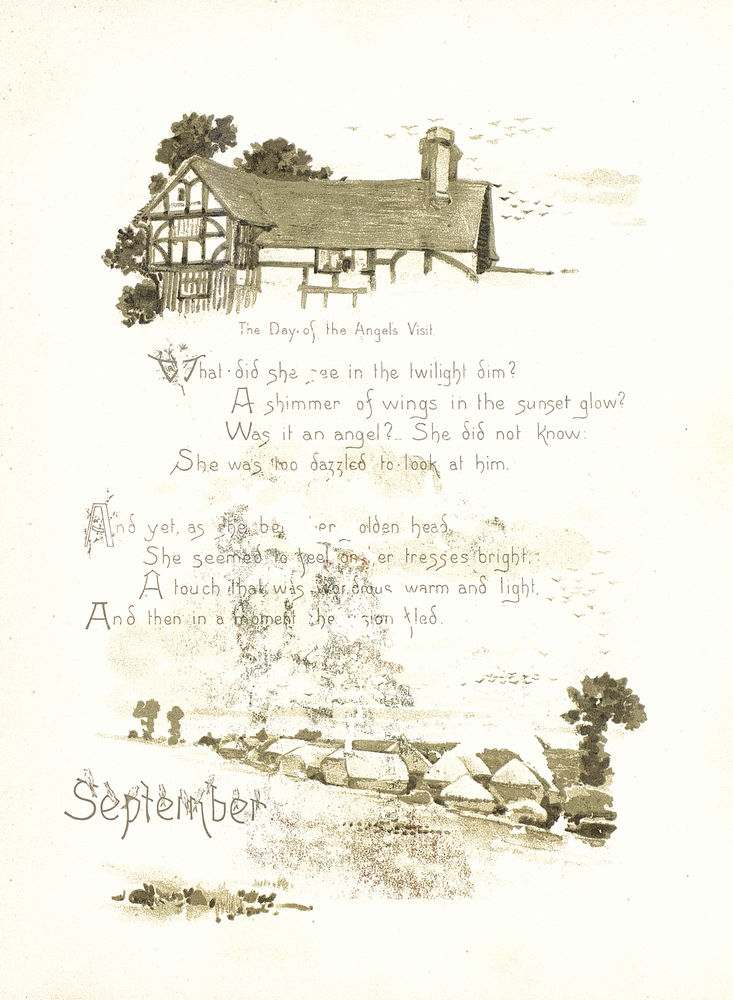 The Day of the Angel's Visit.
What did she see in the twilight dim?
A shimmer of wings in the sunset glow?
Was it an angel? She did not know:
She was too dazzled to look at him.
And yet, as she olden head,
She seemed to feel on er tresses bright,
A touch that was wondrous warm and light,
And then in a moment the fled.
September